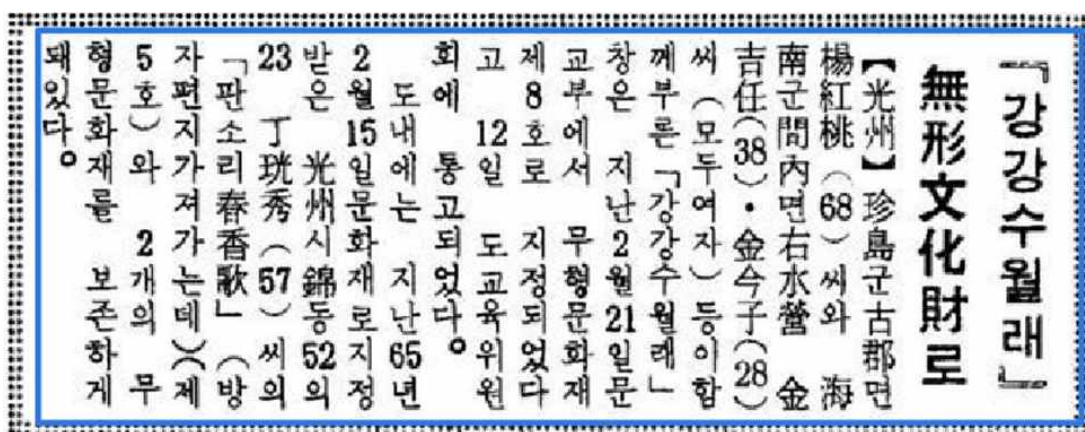 『강강수월래』
無形文化財로
【光州】珍島군古郡면
楊紅桃(68)씨와 海
南군間內면右水營 金
吉任(38)·金今子(28)
씨(모두여자)등이함
께부른「강강수월래」
창은 지난2월21일문
교부에서 무형문화재
제8호로 지정되었다
고 12일 도교육위원
회에 통고되었다。
도내에는 지난65년
2월15일문화재로지정
받은 光州시錦동52의
23 丁珖秀(57)씨의
「판소리春香歌」(방
자편지가져가는데)(제
5호)와 2개의 무
형문화재를 보존하게
돼있다。